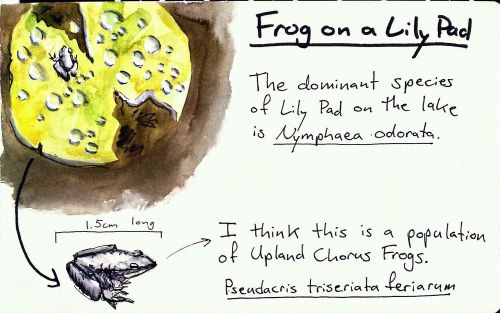 Frog on a Lily Pad
The dominant species
of Lily Pad on the lake
is Nymphaea odorata.
1.5cm long
I think this is a population
of Upland Chorus Frogs.
Pseudacris triseriata feriarum